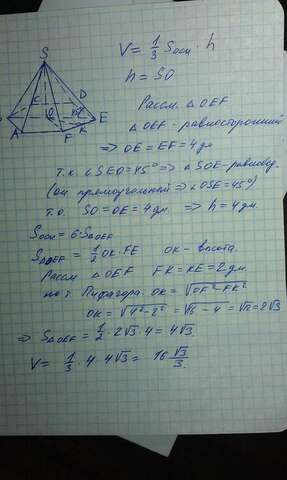 S
V = 1/3 Sосн · h
h = SO
Рассм. △OEF
△OEF - равносторонний
=> OE = EF = 4 дм
C D
O 45° E
A F K
т.к. ∠SEO = 45° => △SOE - равнобед.
(он прямоугольный => ∠OSE = 45°)
т.о. SO = OE = 4 дм. => h = 4 дм.
Sосн = 6·S△OEF
S△OEF = 1/2 OK·FE OK - высота.
Рассм △OEF FK = KE = 2 дм.
по т. Пифагора. OK = √OF²-FK²
OK = √4²-2² = √16-4 = √12 = 2√3
=> S△OEF = 1/2 · 2√3 · 4 = 4√3.
V = 1/3 · 4 · 4√3 = 16√3/3.